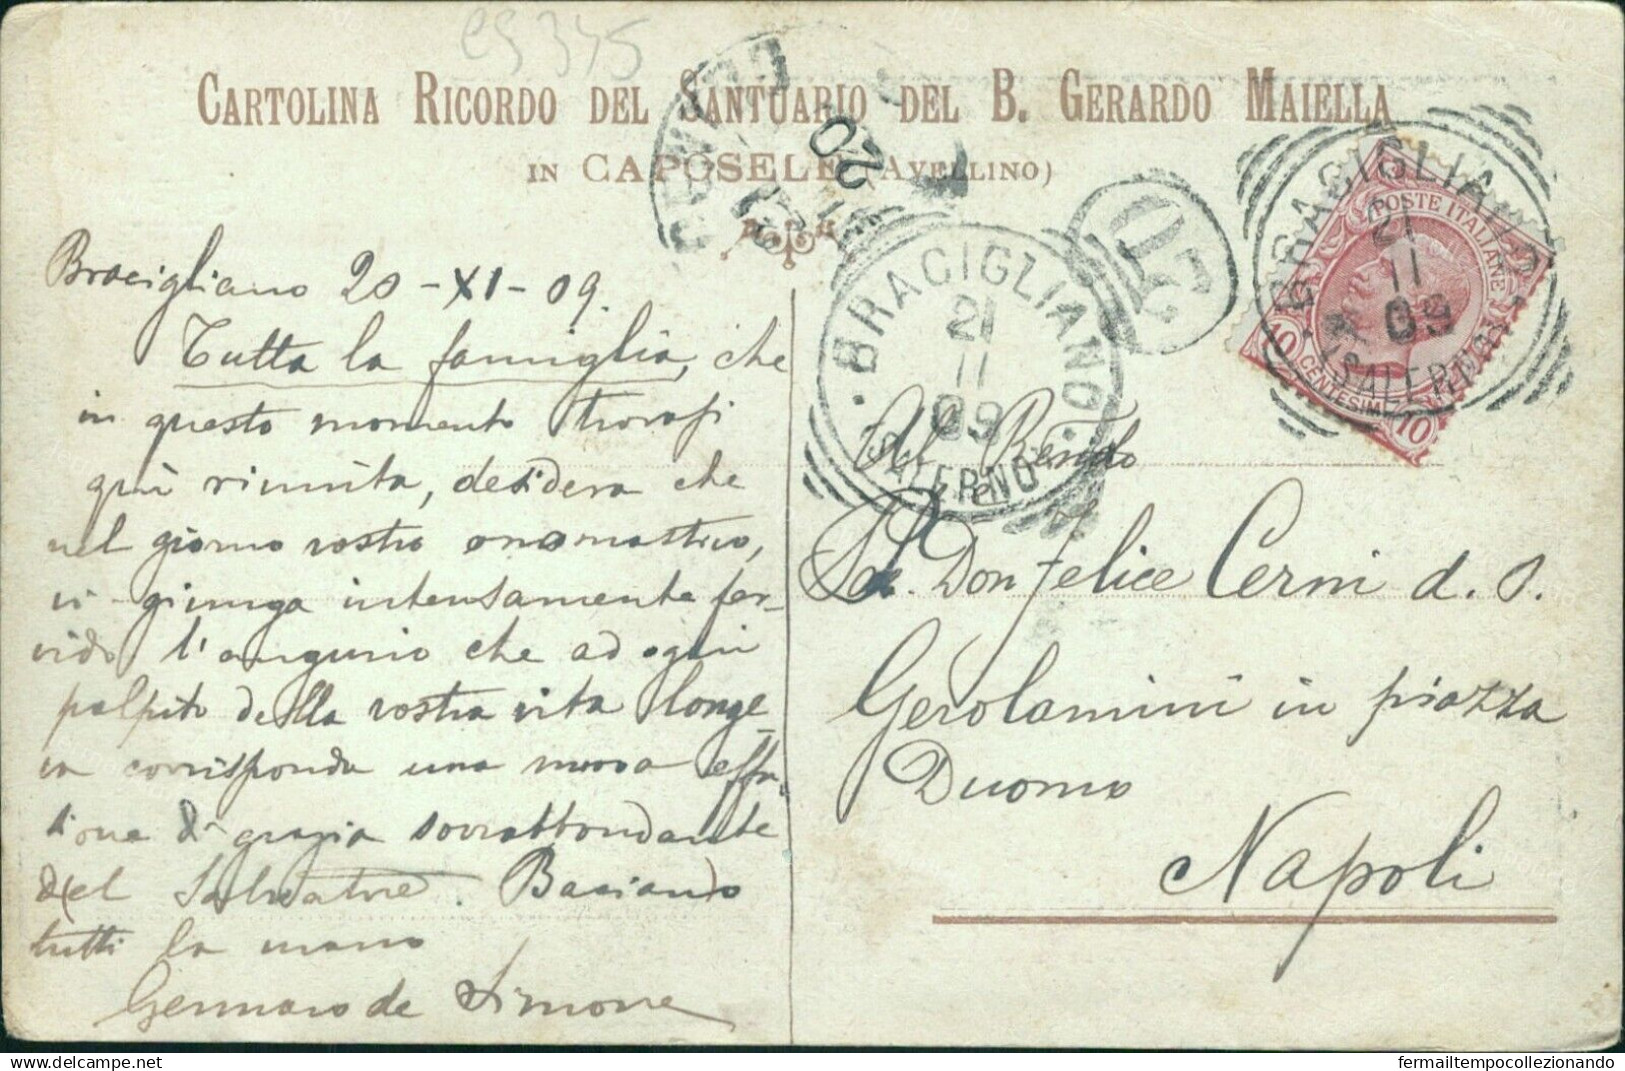 cs 345
CARTOLINA RICORDO DEL SANTUARIO DEL B. GERARDO MAIELLA
IN CAPOSELE (AVELLINO)
20
BRACIGLIANO
21
11
09
(SALERNO)
BRACIGLIANO
21
11
09
(SALERNO)
POSTE ITALIANE
10 CENTESIMI 10
Bracigliano 20-XI-09.
Tutta la famiglia, che
in questo momento trovasi
quì riunita, desidera che
nel giorno vostro onomastico,
vi giunga intensamente fer-
vido l'augurio che ad ogni
palpito della vostra vita longe-
va corrisponda una nuova effu-
sione di grazia sovrabbondante
del Salvatore. Baciando
tutti la mano
Gennaro de Simone
Al Rendo
Don Felice Cerni d. O.
Gerolamini in piazza
Duomo
Napoli
Delcampe.net
fermailtempocollezionando